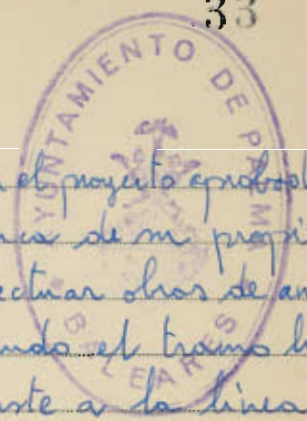 33
AYUNTAMIENTO DE PALMA
BALEARES
el proyecto aprobad
de su propi
ectuar obras de am
ando el tramo
a la línea